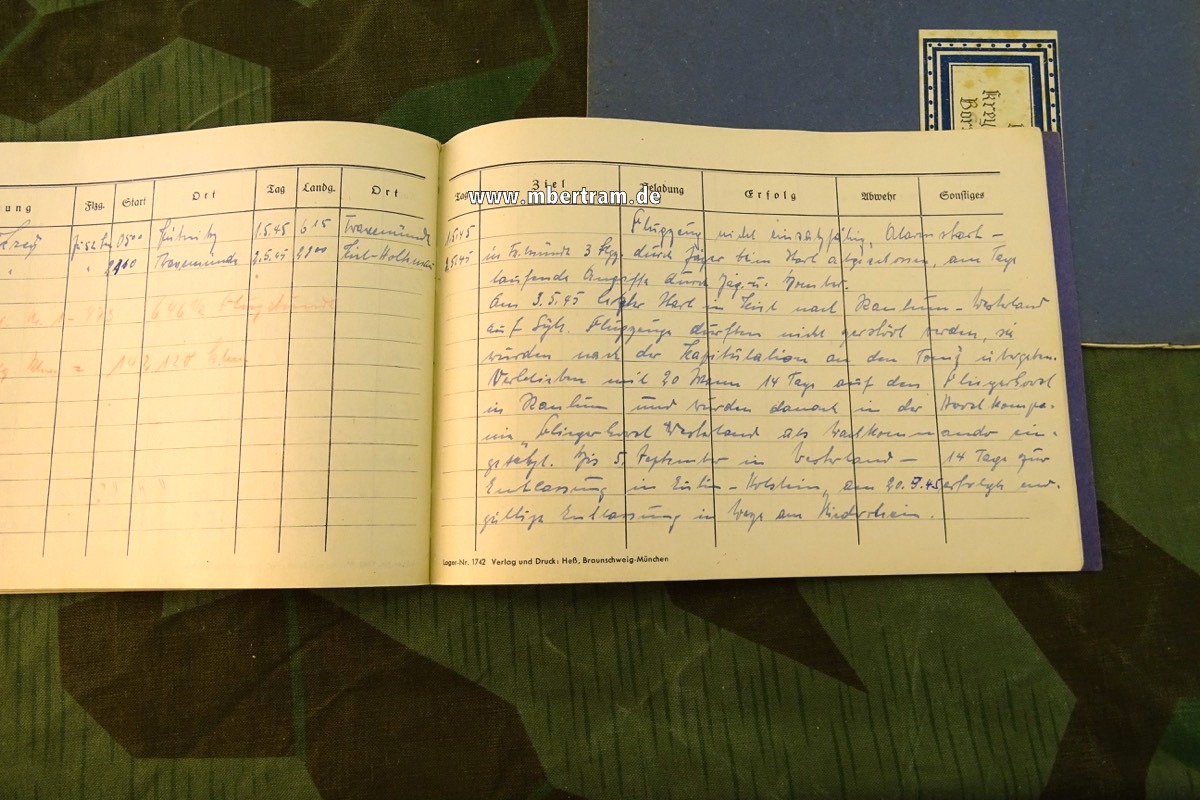 www.mbertram.de
Flzg. Start Ort Tag Landg. Ort
0500 Pütnitz 1.5.45 615 Travemünde
" " Travemünde 2.5.45 2200 Kiel-Holtenau
Tag Ziel Beladung Erfolg Abwehr Sonstiges
1.5.45 Flugzeug nicht einsatzfähig, Alarmstart –
2.5.45 in 3 durch Jäger beim Start abgeschossen, am Tage
laufende Angriffe durch Jäg. u. Bomber.
Am 3.5.45 letzter Start in Kiel nach Rantum – Westerland
auf Sylt. Flugzeuge durften nicht zerstört werden, sie
wurden nach der Kapitulation an den Tommy übergeben.
Verblieben mit 20 Mann 14 Tage auf dem Fliegerhorst
in Rantum und wurden danach in der Horstkompa-
nie Fliegerhorst Westerland als Wachkommando ein-
gesetzt. Bis 5. September in Westerland – 14 Tage zur
Entlassung in Eutin – Holstein, am 20.9.45 erfolgte end-
gültige Entlassung in am Niederrhein.
Lager-Nr. 1742 Verlag und Druck: Heß, Braunschweig-München